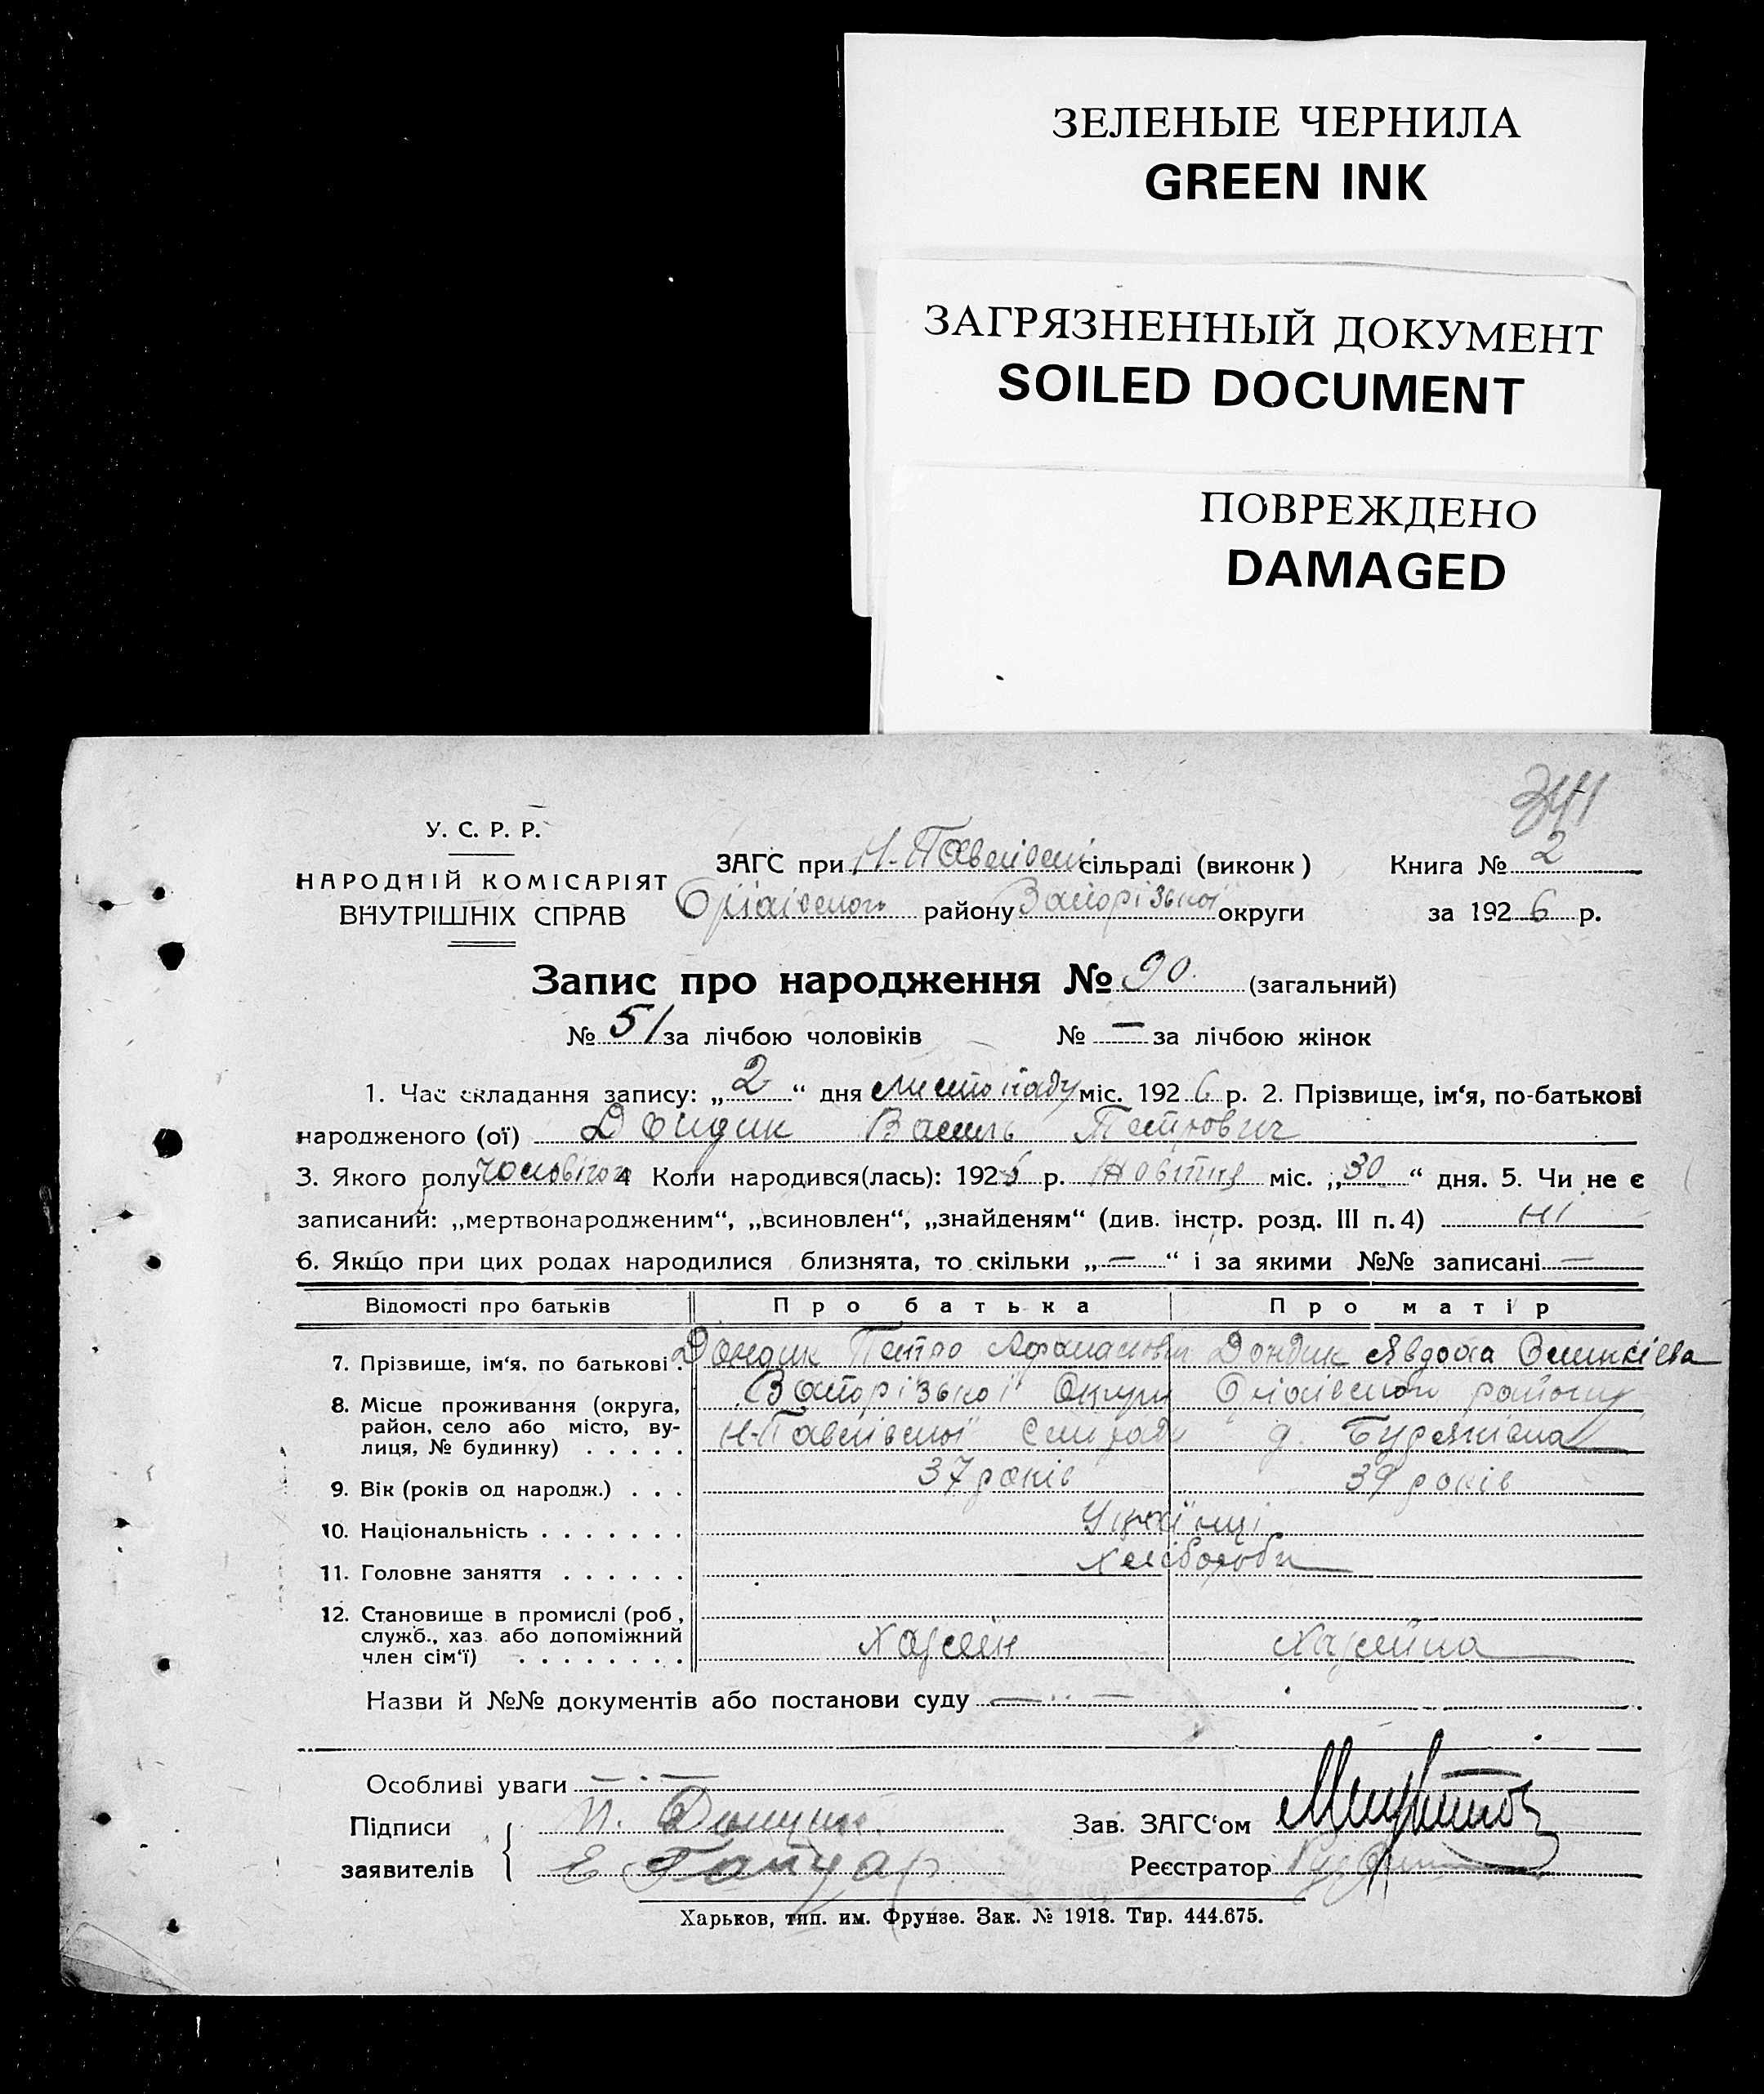 ЗЕЛЕНЫЕ ЧЕРНИЛА
GREEN INK
ЗАГРЯЗНЕННЫЙ ДОКУМЕНТ
SOILED DOCUMENT
ПОВРЕЖДЕНО
DAMAGED
341
У. С. Р. Р.
НАРОДНІЙ КОМІСАРІЯТ
ВНУТРІШНІХ СПРАВ
ЗАГС при Н-Павлівськ сільраді (виконк) Книга № 2
Оріхівського району Запорізької округи за 1926 р.
Запис про народження № 90 (загальний)
№ 51 за лічбою чоловіків № — за лічбою жінок
1. Час складання запису: „2“ дня листопаду міс. 1926 р. 2. Прізвище, ім‘я, по-батькові
народженого (ої) Дондик Василь Петрович
3. Якого полу чоловічого 4 Коли народився(лась): 1926 р. Жовтня міс. „30“ дня. 5. Чи не є
записаний: „мертвонародженим“, „всиновлен“, „знайденям“ (див. інстр. розд. III п. 4) ні
6. Якщо при цих родах народилися близнята, то скільки „—“ і за якими №№ записані —
Відомості про батьків Про батька Про матір
7. Прізвище, ім‘я, по батькові Дондик Петро Афанасович Дондик Явдоха
8. Місце проживання (округа, район, село або місто, вулиця, № будинку) Запорізької Округи Оріхівського району
Н-Павлівської Сільради
9. Вік (років од народж.) 37 років 39 років
10. Національність Українці
11. Головне заняття Хлібороби
12. Становище в промислі (роб, служб., хаз. або допоміжний член сім‘ї) Хазяїн Хазяйка
Назви й №№ документів або постанови суду —
Особливі уваги —
Підписи П. Дондик Зав. ЗАГС‘ом
заявителів Е Гончар Реєстратор
Харьков, тип. им. Фрунзе. Зак. № 1918. Тир. 444.675.